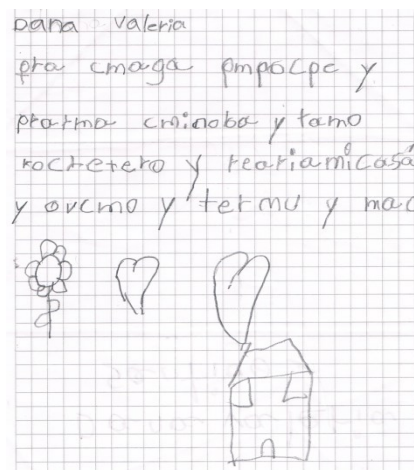 Dana Valeria
pra cmaga pmpocpc y
prarma cminoba y tamo
roctetero y reariamicasa
y ovcmo y termu y mac